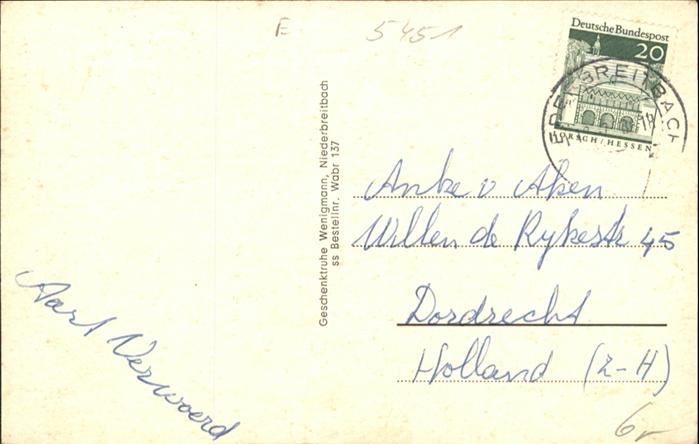 E 5451
Deutsche Bundespost
20
LORSCH/HESSEN
Geschenktruhe Wenigmann, Niederbreitbach
ss Bestellnr. Wabr 137
Anke v Aken
Willem de Rykestr 45
Dordrecht
Holland (Z-H)
Aart Verwoerd
6,-